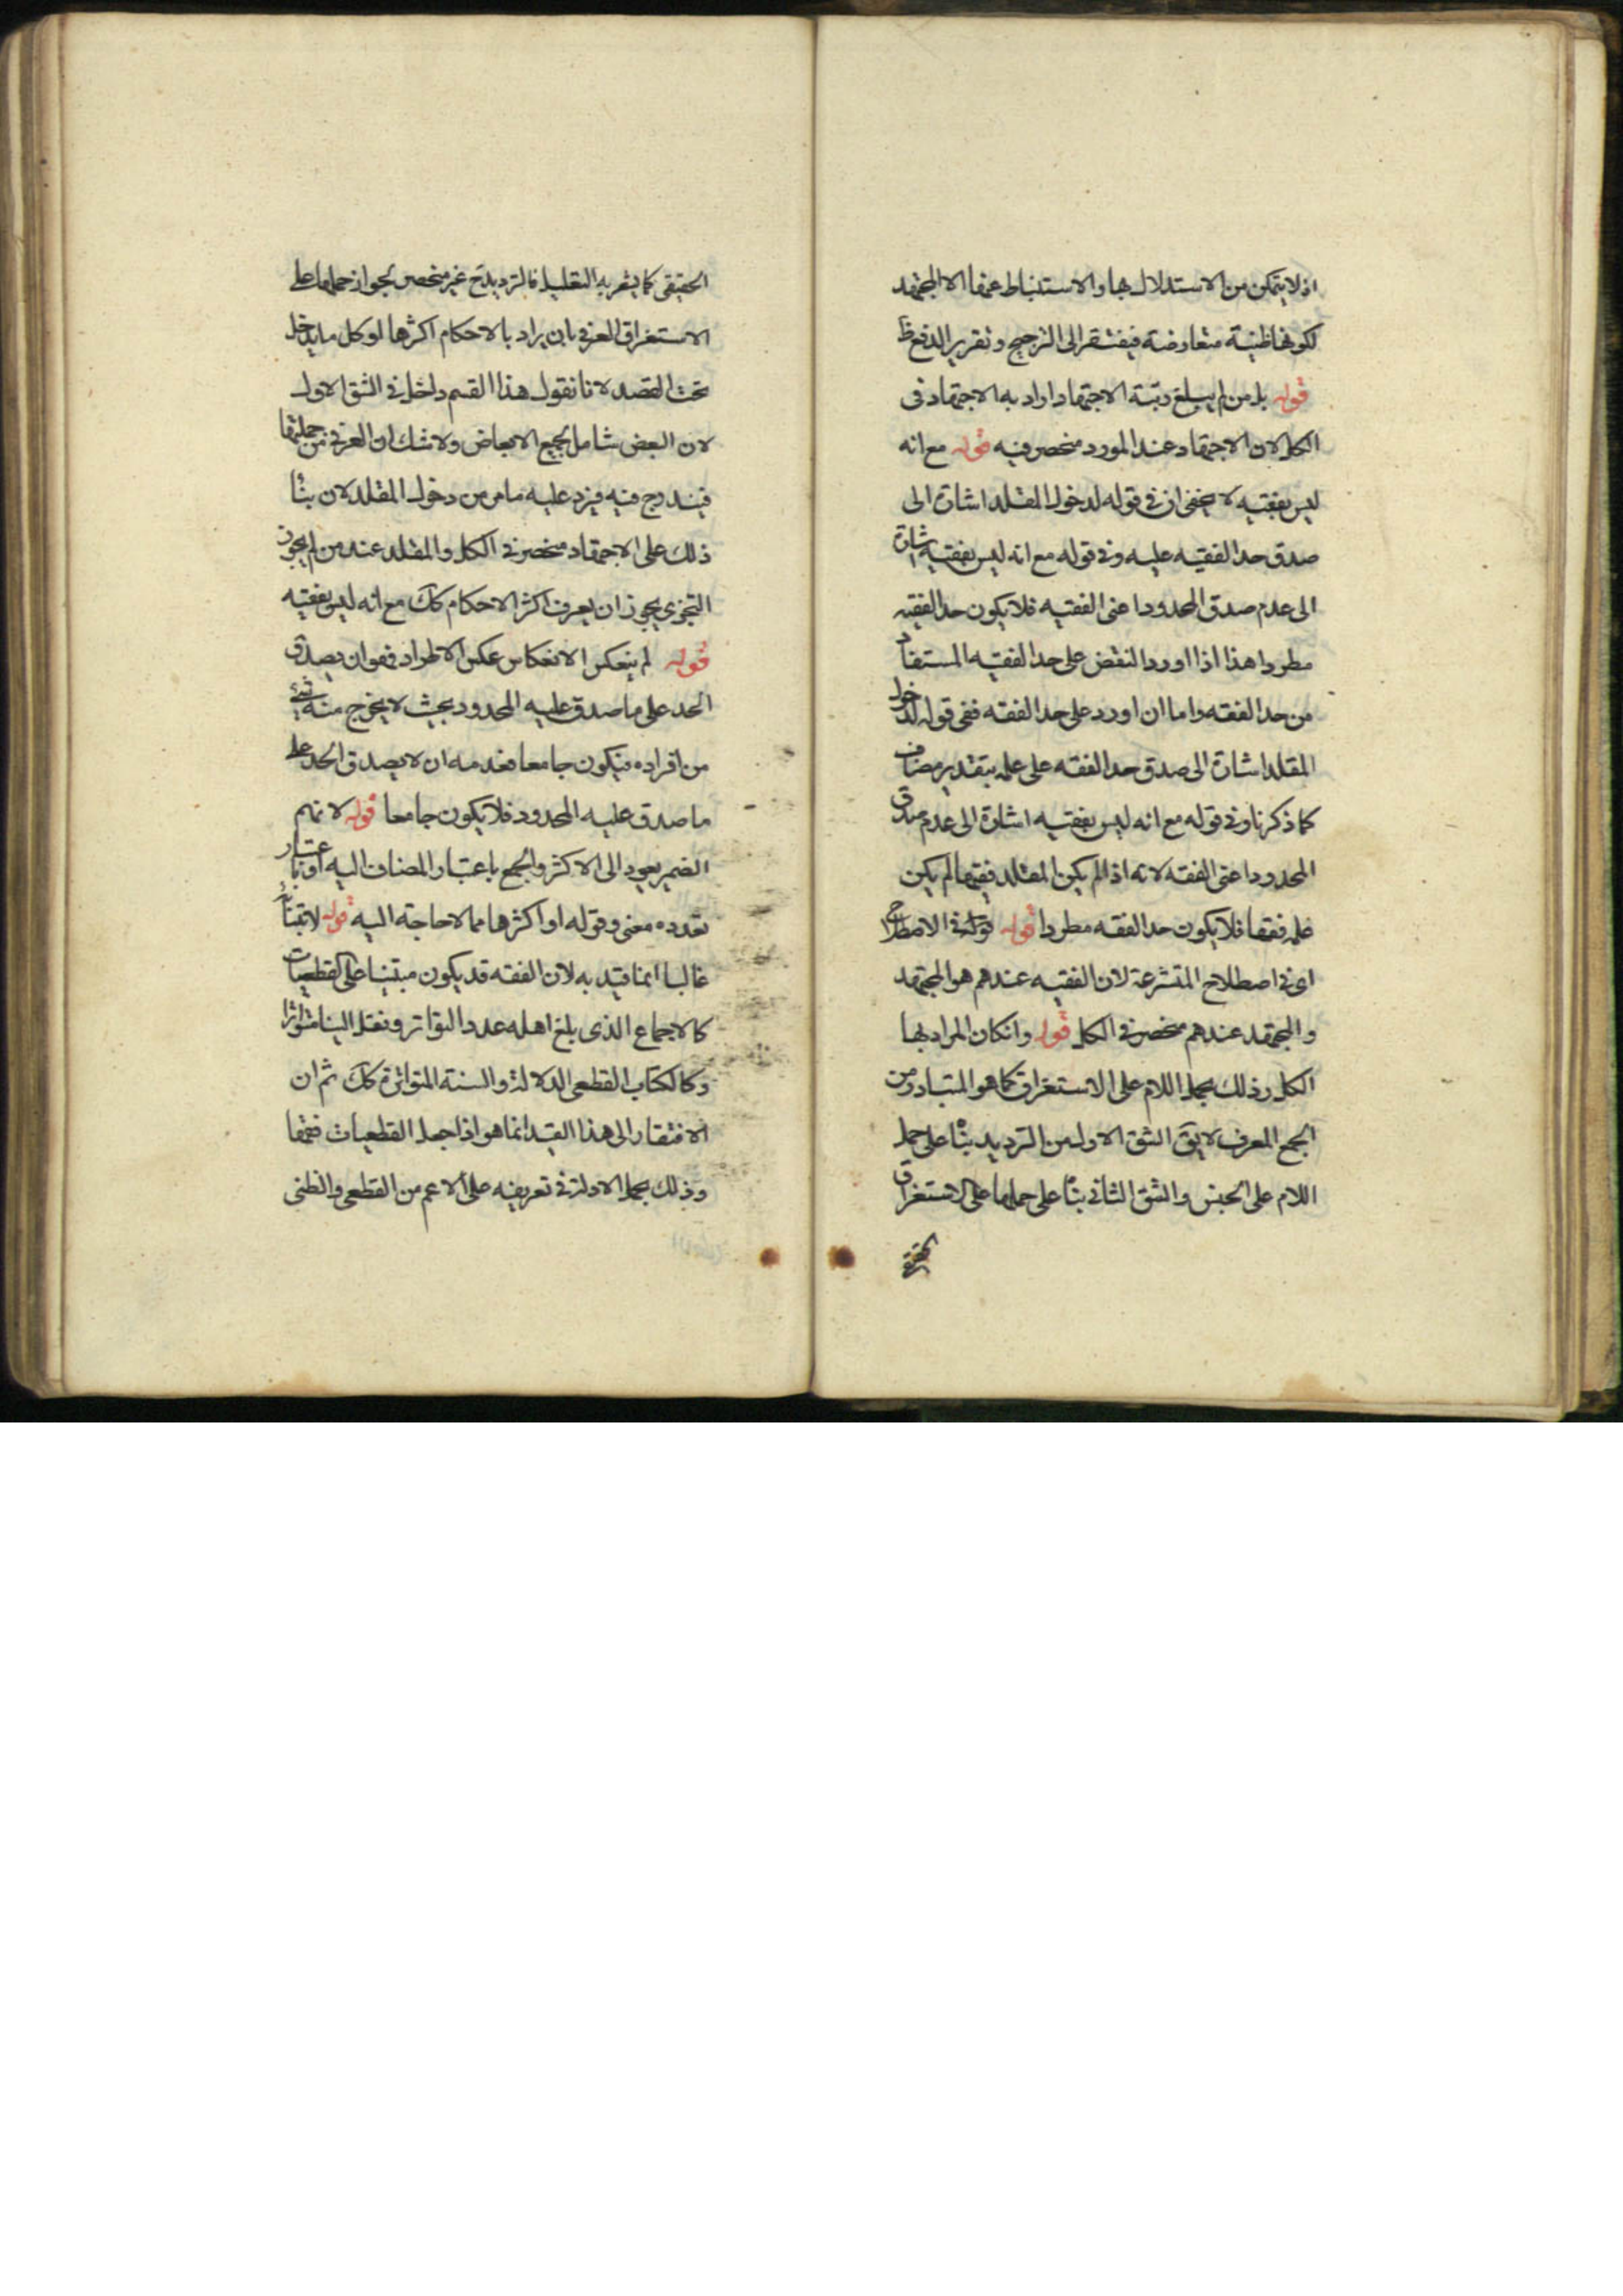 اذ لا يتمكن من الاستدلال بها والاستنباط عنها الا المجتهد
لكونها ظنية متعارضة فيفتقر الى الترجيح وتقرير الدفع ظ
قوله بل من لم يبلغ رتبة الاجتهاد اراد به الاجتهاد فى
الكل لان الاجتهاد عند المورد منحصر فيه قوله مع انه
ليس بفقيه لا يخفى ان فى قوله لدخول المقلد اشارة الى
صدق حد الفقيه عليه وفى قوله مع انه ليس بفقيه اشارة
الى عدم صدق المحدود اعنى الفقيه فلا يكون حد الفقيه
مطردا هذا اذا اورد النقض على حد الفقيه المستفاد
من حد الفقه واما ان اورد على حد الفقه ففى قوله لدخول
المقلد اشارة الى صدق حد الفقه على علمه بتقدير مضاف
كما ذكرنا وفى قوله مع انه ليس بفقيه اشارة الى عدم صدق
المحدود اعنى الفقه لانه اذا لم يكن المقلد فقيها لم يكن
علمه فقها فلا يكون حد الفقه مطردا قوله فى الاصطلاح
اى فى اصطلاح المتشرعة لان الفقيه عندهم هو المجتهد
والمجتهد عندهم منحصر فى الكل قوله وانكان المراد بها
الكل وذلك بحمل اللام على الاستغراق كما هو المتبادر من
الجمع المعرف لا يق الشق الاول من الترديد بناء على حمل
اللام على الجنس والشق الثانى بناء على حملها على الاستغراق
الحقيقى
الحقيقى كما يشعر به التعليل فالترديد ح غير منحصر لجواز حملها على
الاستغراق العرفى بان يراد بالاحكام اكثرها او كل ما يدخل
تحت القصد لانا نقول هذا القسم داخل فى الشق الاول
لان البعض شامل لجميع الابعاض ولا شك ان العرفى من جملتها
فيندرج فيه فيرد عليه ما مر من دخول المقلد لان بناء
ذلك على الاجتهاد منحصر فى الكل والمقلد عند من لم يجوز
التجزى يجوز ان يعرف اكثر الاحكام كك مع انه ليس بفقيه
قوله لم ينعكس الانعكاس عكس الاطراد فهو ان يصدق
الحد على ما صدق عليه المحدود بحيث لا يخرج منه شىء
من افراده فيكون جامعا فعدمه ان لا يصدق الحد على
ما صدق عليه المحدود فلا يكون جامعا قوله لانهم
الضمير يعود الى الاكثر والجمع باعتبار المضاف اليه او باعتبار
تعدده معنى وقوله او اكثرها مما لا حاجة اليه قوله لابتناء
غالبا انما قيد به لان الفقه قد يكون مبتنيا على القطعيات
كالاجماع الذى بلغ اهله عدد التواتر ونقل الينا متواترا
وكالكتاب القطعى الدلالة والسنة المتواترة كك ثم ان
الافتقار الى هذا القيد انما هو اذا جعل القطعيات فقها
وذلك بحمل الادلة فى تعريفه على الاعم من القطعى والظنى